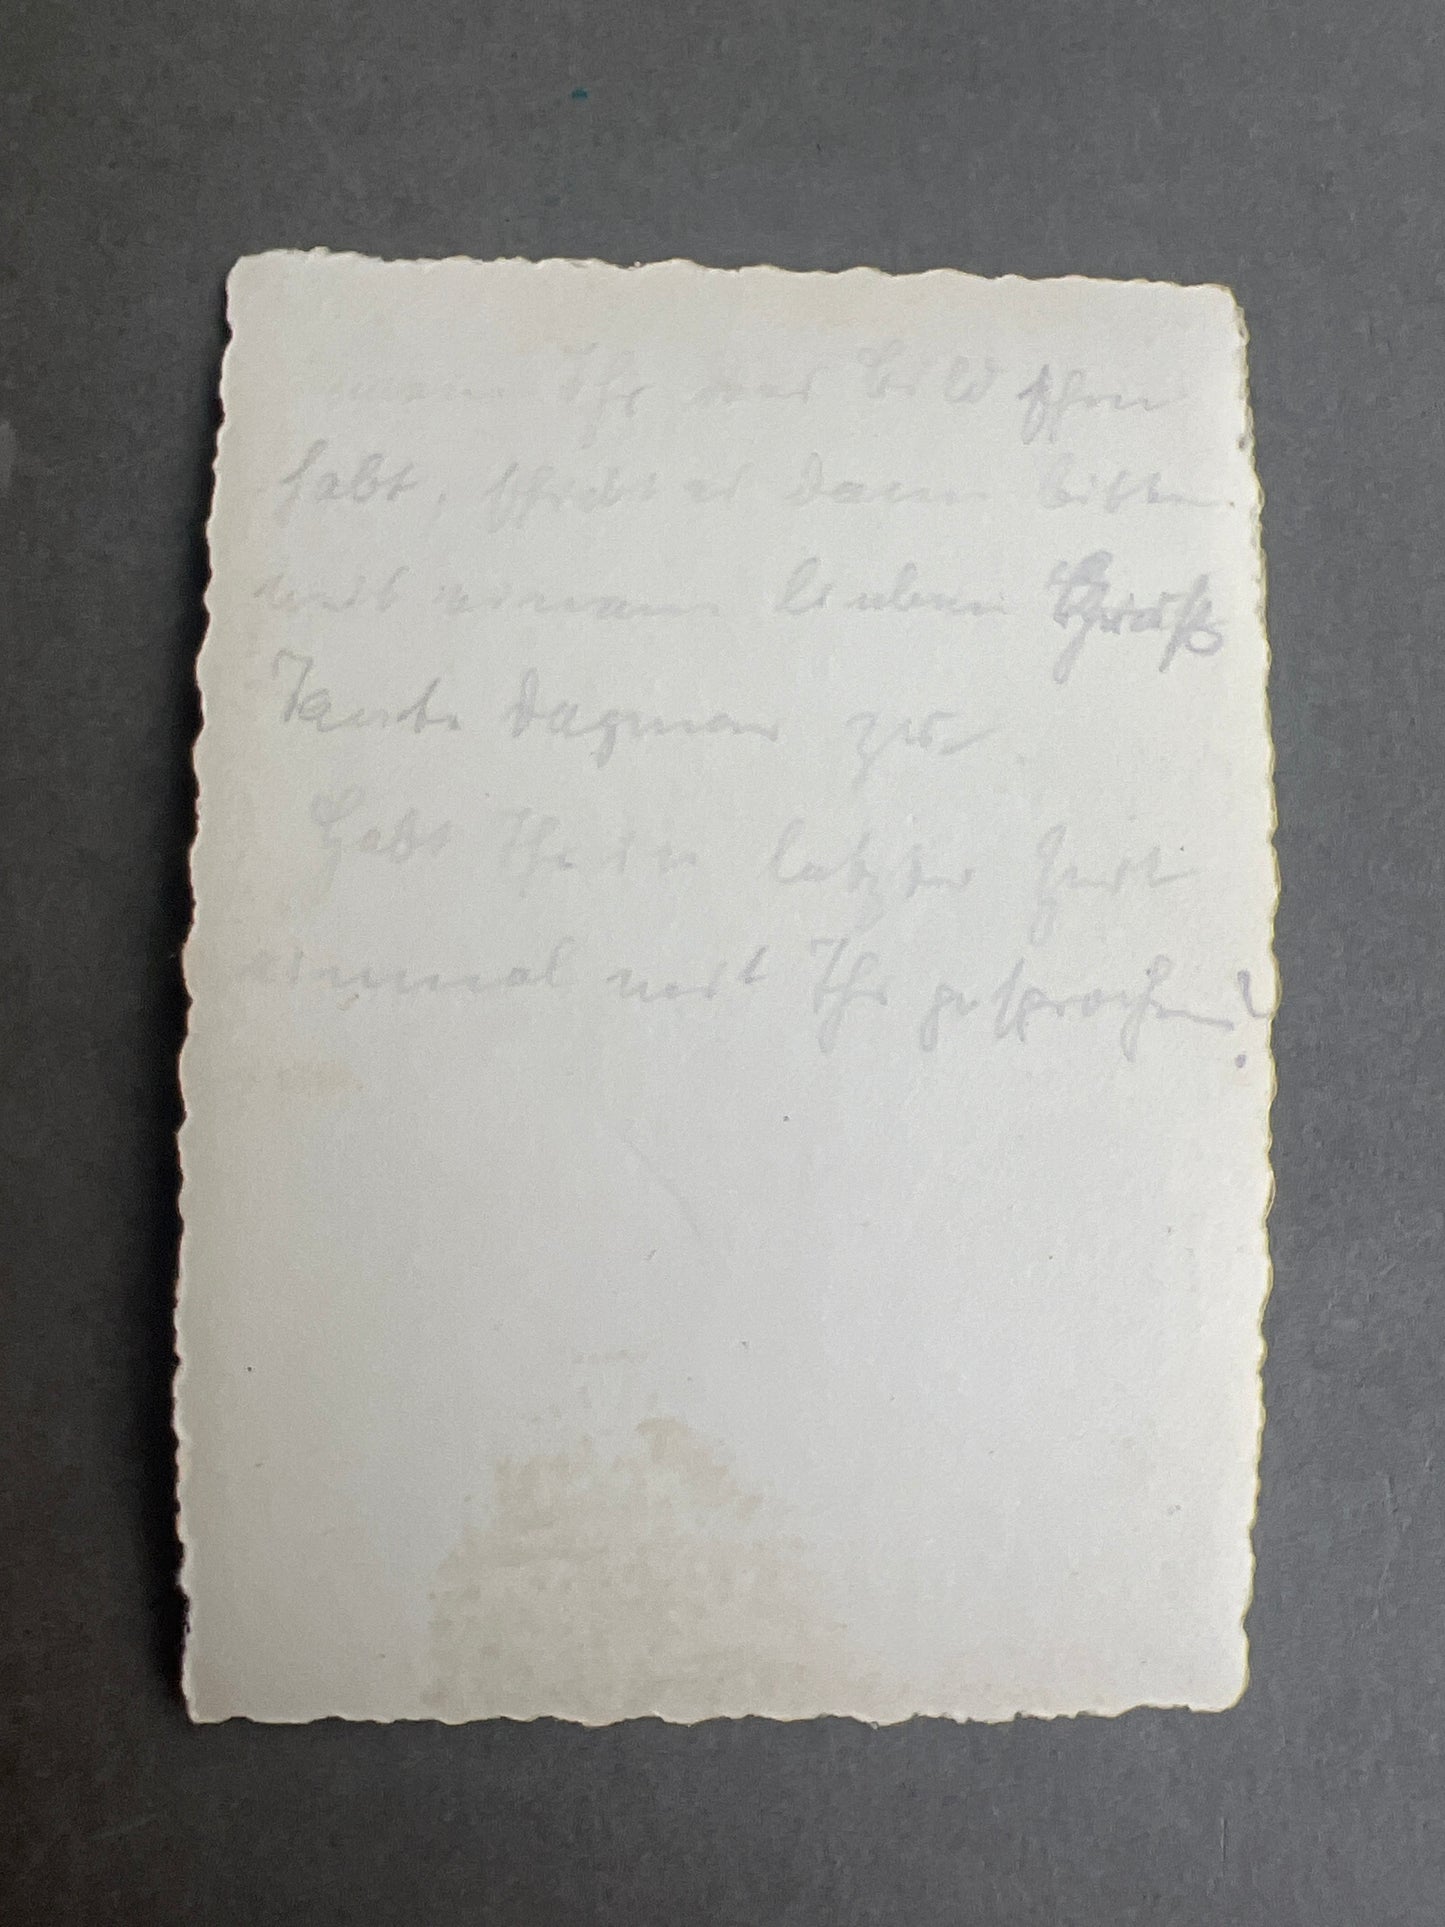 wenn Ihr das Bild gesehen
habt, schickt es dann bitte
mit einem lieben Gruß
Tante Dagmar zu.
Habt Ihr in letzter Zeit
einmal mit Ihr gesprochen?